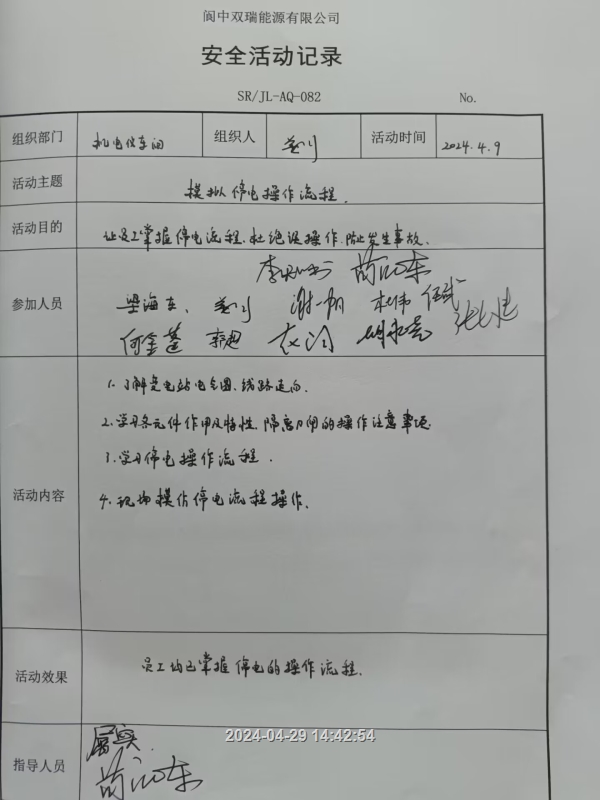 阆中双瑞能源有限公司
安全活动记录
SR/JL-AQ-082 No.
组织部门 机电仪车间 组织人 活动时间 2024.4.9
活动主题 模拟停电操作流程.
活动目的 让员工掌握停电流程.杜绝误操作.防止发生事故.
参加人员
梁海东、 谢一帆 杜伟 伍斌
何金蓬 李超
活动内容
1.了解变电站电气图、线路走向.
2.学习各元件作用及特性.隔离刀闸的操作注意事项.
3.学习停电操作流程.
4.现场模仿停电流程操作.
活动效果 员工均已掌握停电的操作流程.
指导人员 属实.
2024-04-29 14:42:54